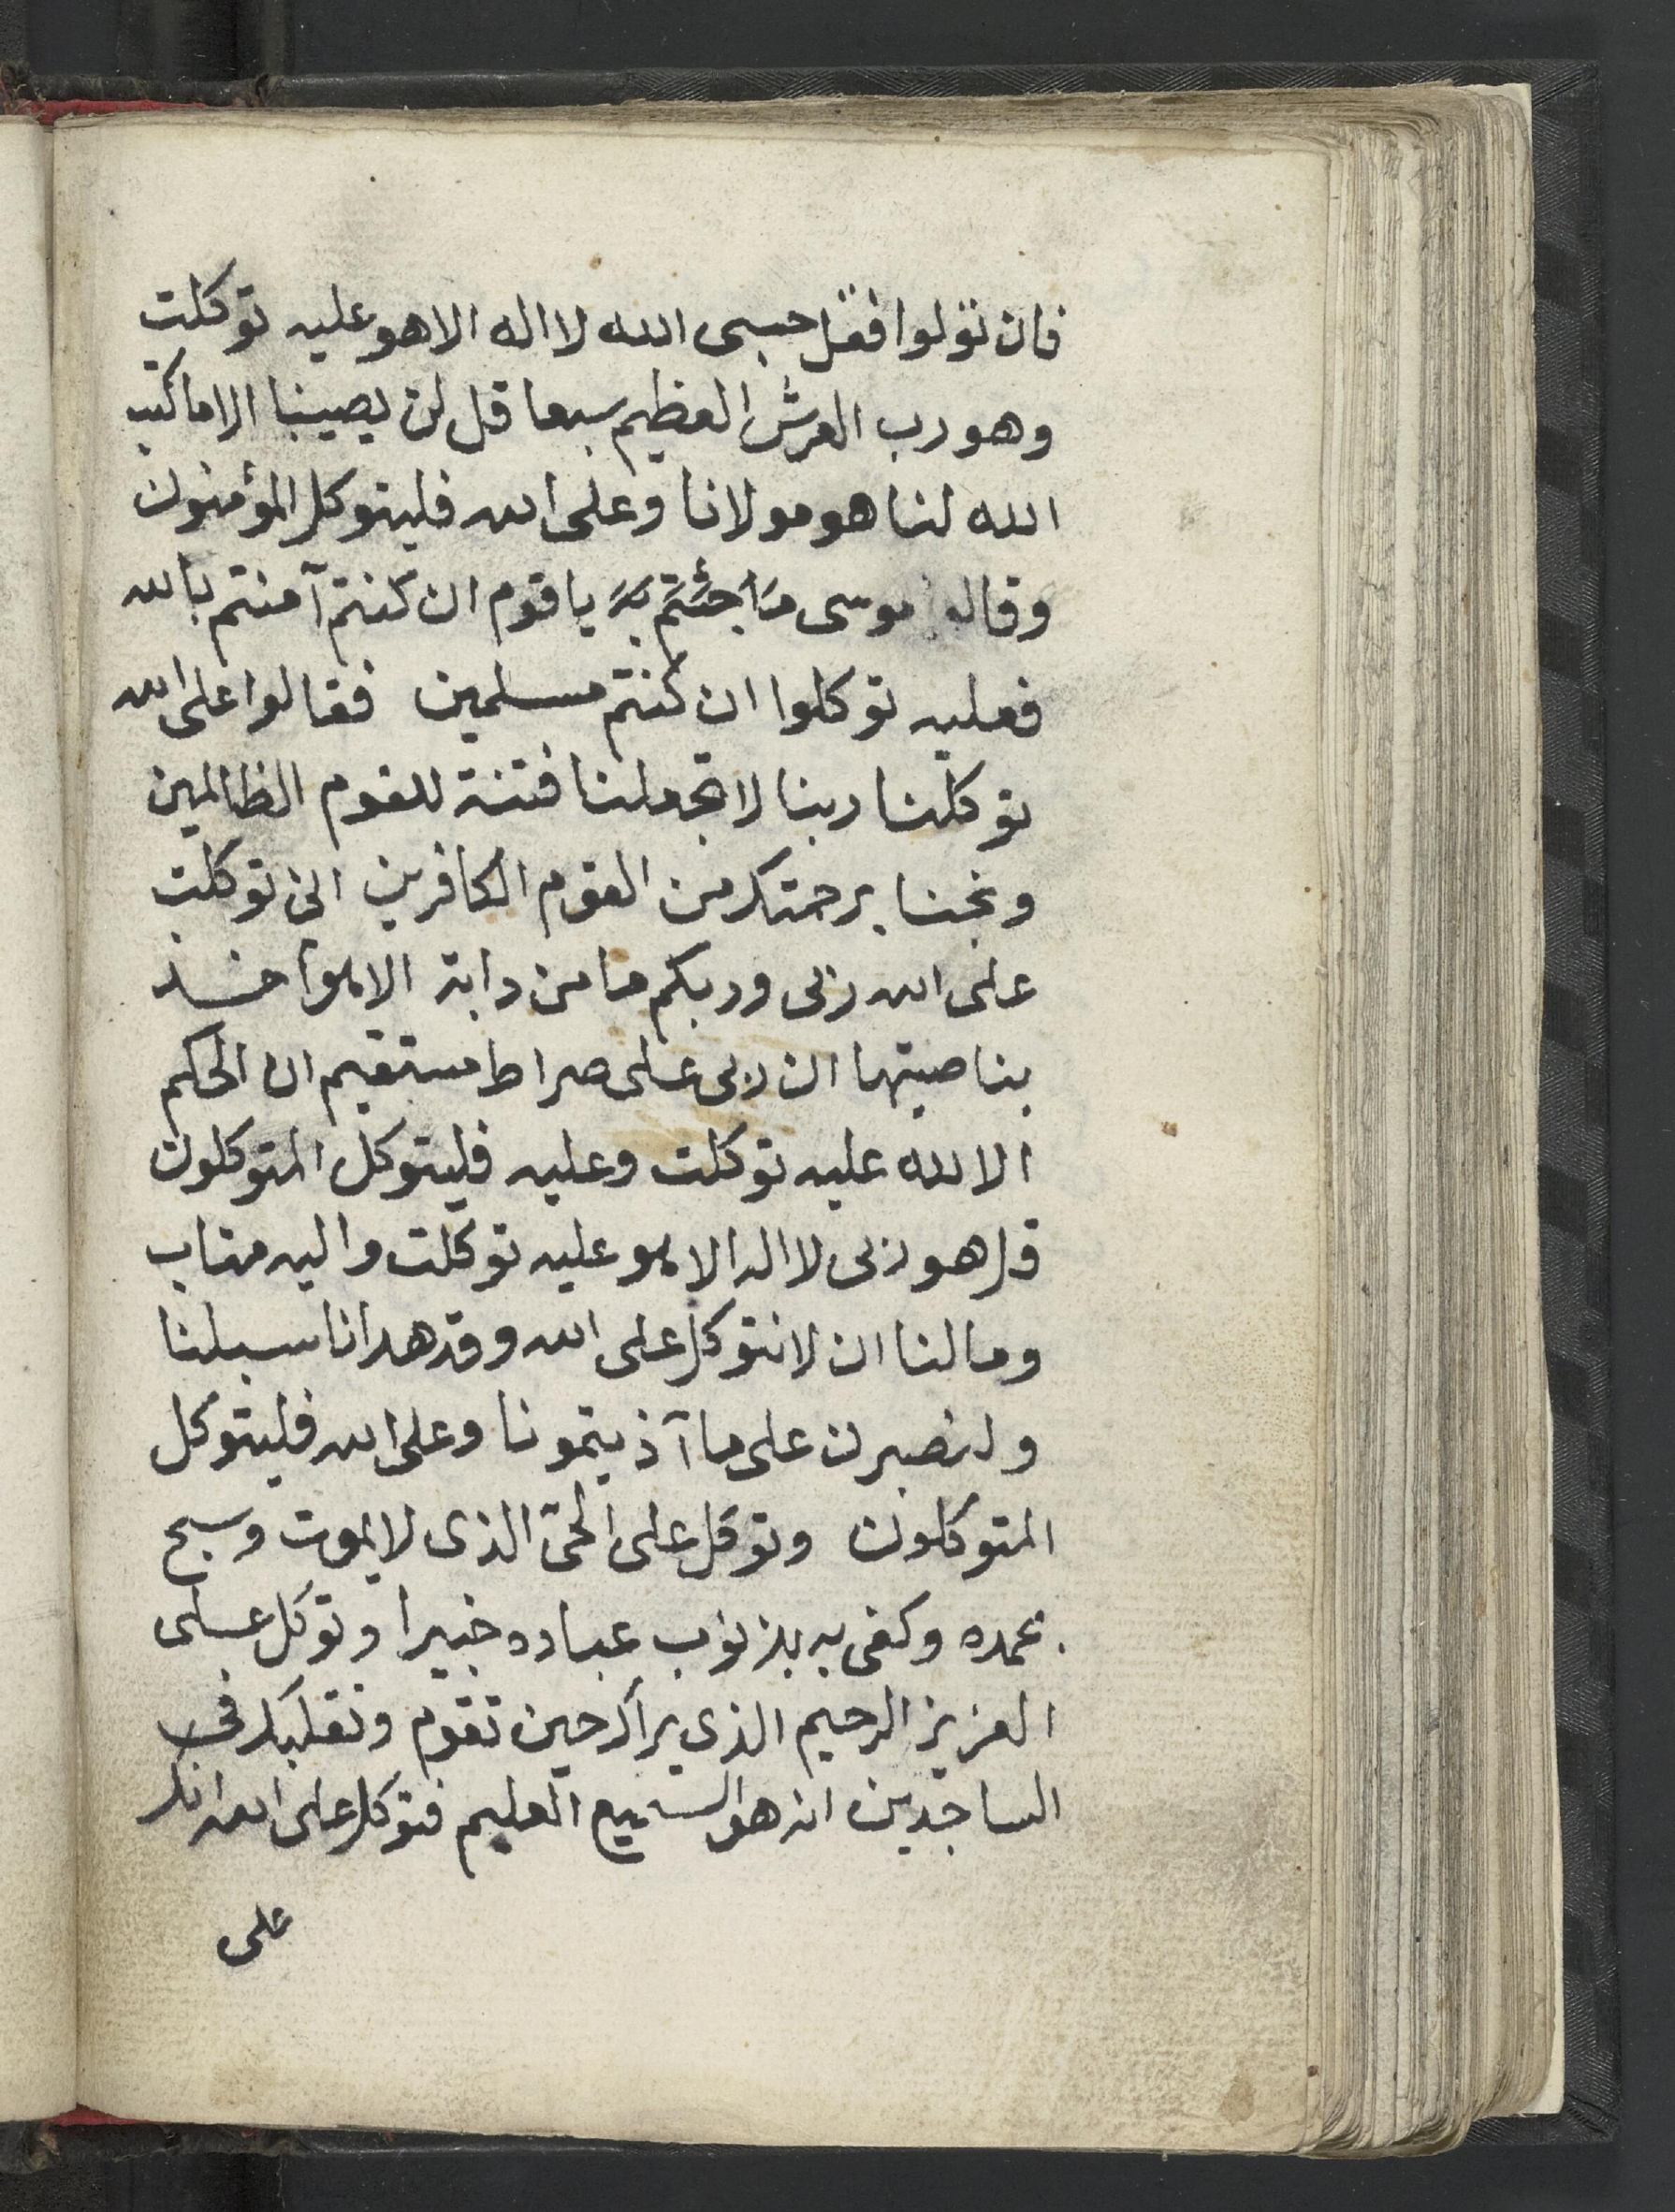 فان تولوا فقل حسبى الله لا اله الا هو عليه توكلت
وهو رب العرش العظيم سبعا قل لن يصيبنا الا ما كتب
الله لنا هو مولانا وعلى الله فليتوكل المؤمنون
وقال موسى ما جئتم به يا قوم ان كنتم آمنتم بالله
فعليه توكلوا ان كنتم مسلمين فقالوا على الله
توكلنا ربنا لا تجعلنا فتنة للقوم الظالمين
ونجنا برحمتك من القوم الكافرين انى توكلت
على الله ربى وربكم ما من دابة الا هو آخذ
بناصيتها ان ربى على صراط مستقيم ان الحكم
الا لله عليه توكلت وعليه فليتوكل المتوكلون
قل هو ربى لا اله الا هو عليه توكلت واليه متاب
وما لنا ان لا نتوكل على الله وقد هدانا سبلنا
ولنصبرن على ما آذيتمونا وعلى الله فليتوكل
المتوكلون وتوكل على الحى الذى لا يموت وسبح
بحمده وكفى به بذنوب عباده خبيرا وتوكل على
العزيز الرحيم الذى يراك حين تقوم وتقلبك فى
الساجدين انه هو السميع العليم فتوكل على الله انك
على